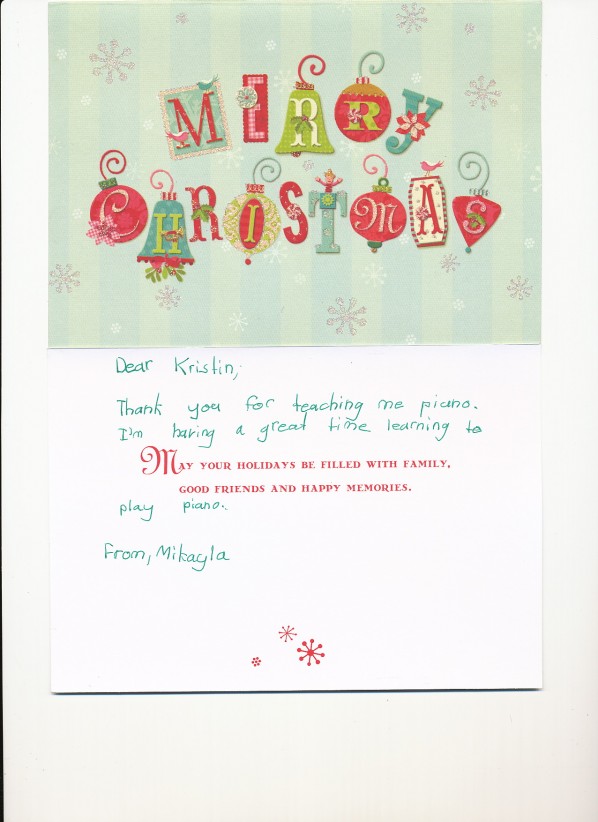 MERRY
CHRISTMAS
Dear Kristin,
Thank you for teaching me piano.
I'm having a great time learning to
MAY YOUR HOLIDAYS BE FILLED WITH FAMILY,
GOOD FRIENDS AND HAPPY MEMORIES.
play piano.
From, Mikayla